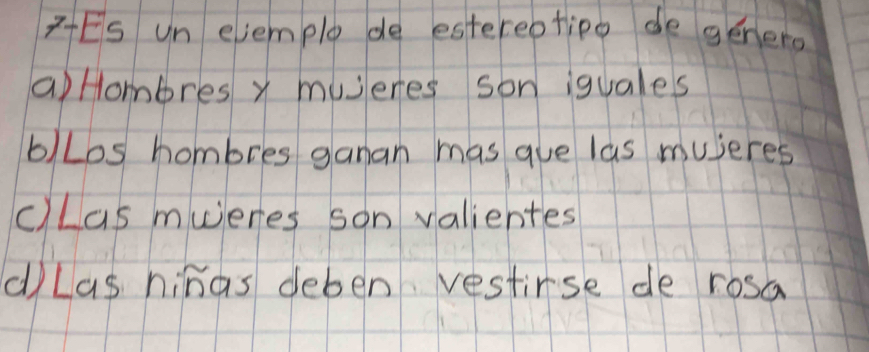 7-Es un ejemplo de estereotipo de género
a) Hombres y mujeres son iguales
b) Los hombres ganan mas que las mujeres
c) Las mujeres son valientes
d) Las niñas deben vestirse de rosa